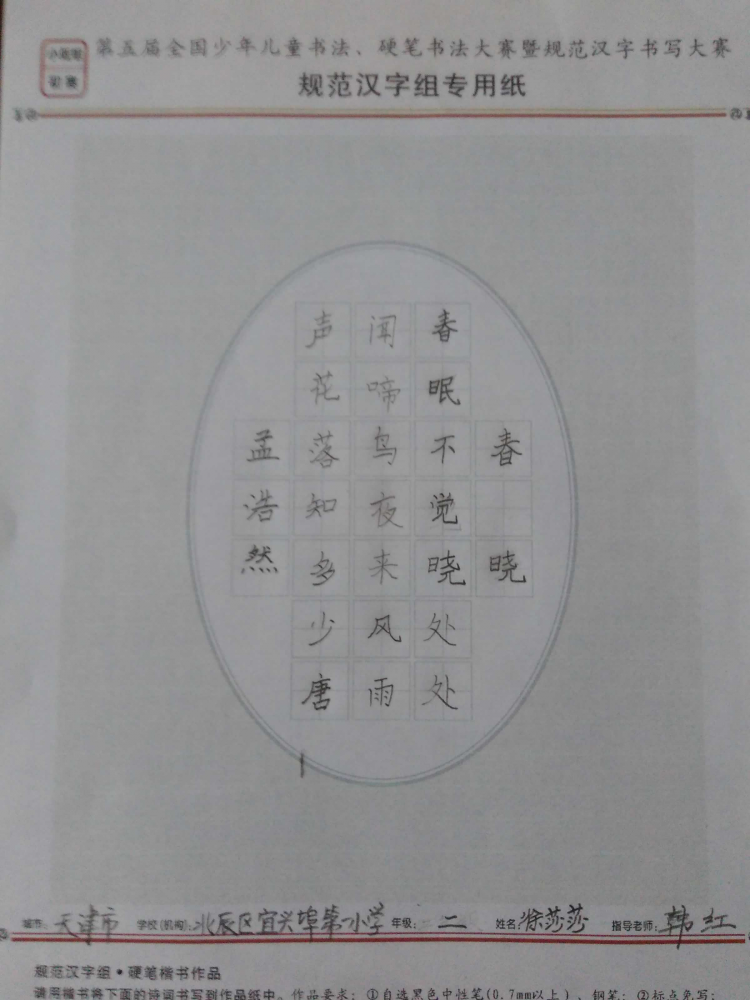 第五届全国少年儿童书法、硬笔书法大赛暨规范汉字书写大赛
规范汉字组专用纸
春晓
春眠不觉晓处处
闻啼鸟夜来风雨
声花落知多少唐
孟浩然
城市: 天津市 学校(机构): 北辰区宜兴埠第一小学 年级: 二 姓名: 徐莎莎 指导老师: 韩红
规范汉字组·硬笔楷书作品
请用楷书将下面的诗词书写到作品纸中。作品要求：①自选黑色中性笔(0.7mm以上)、钢笔；②标点免写；